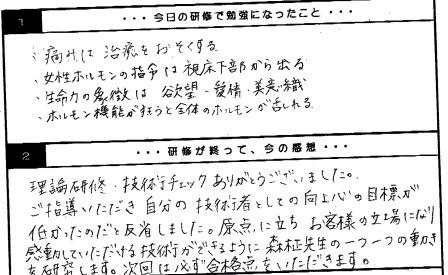 1 ・・・今日の研修で勉強になったこと・・・
、痛みは 治癒をおそくする
・女性ホルモンの指令は視床下部から出る
・生命力の象徴は 欲望・愛情・美意識
・ホルモン機能が狂うと全体のホルモンが乱れる
2 ・・・研修が終って、今の感想・・・
理論研修・技術チェックありがとうございました。
ご指導いただき 自分の技術者としての向上心の目標が
低かったのだと反省しました。原点に立ち お客様の立場になり
感動していただける技術ができるように 森柾先生の一つ一つの動き
を研究します。次回は必ず合格点をいただきます。